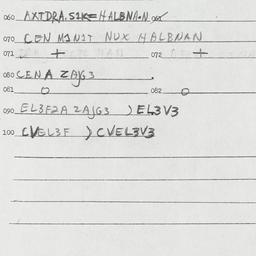 060 AXTDRA.S1K=HALBNA.N 061
070 CEN M1N1T NUX HALBNAN
071 + 072 +
080 CENA ZAJG3 .
081 O 082 O
090 EL3F2A ZAJG3 ) EL3V3
100 CVEL3F ) CVEL3V3